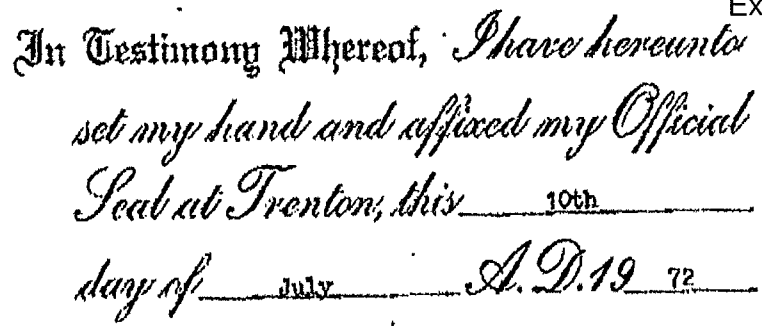 Ex
In Testimony Whereof, I have hereunto
set my hand and affixed my Official
Seal at Trenton, this 10th
day of July A.D. 19 72